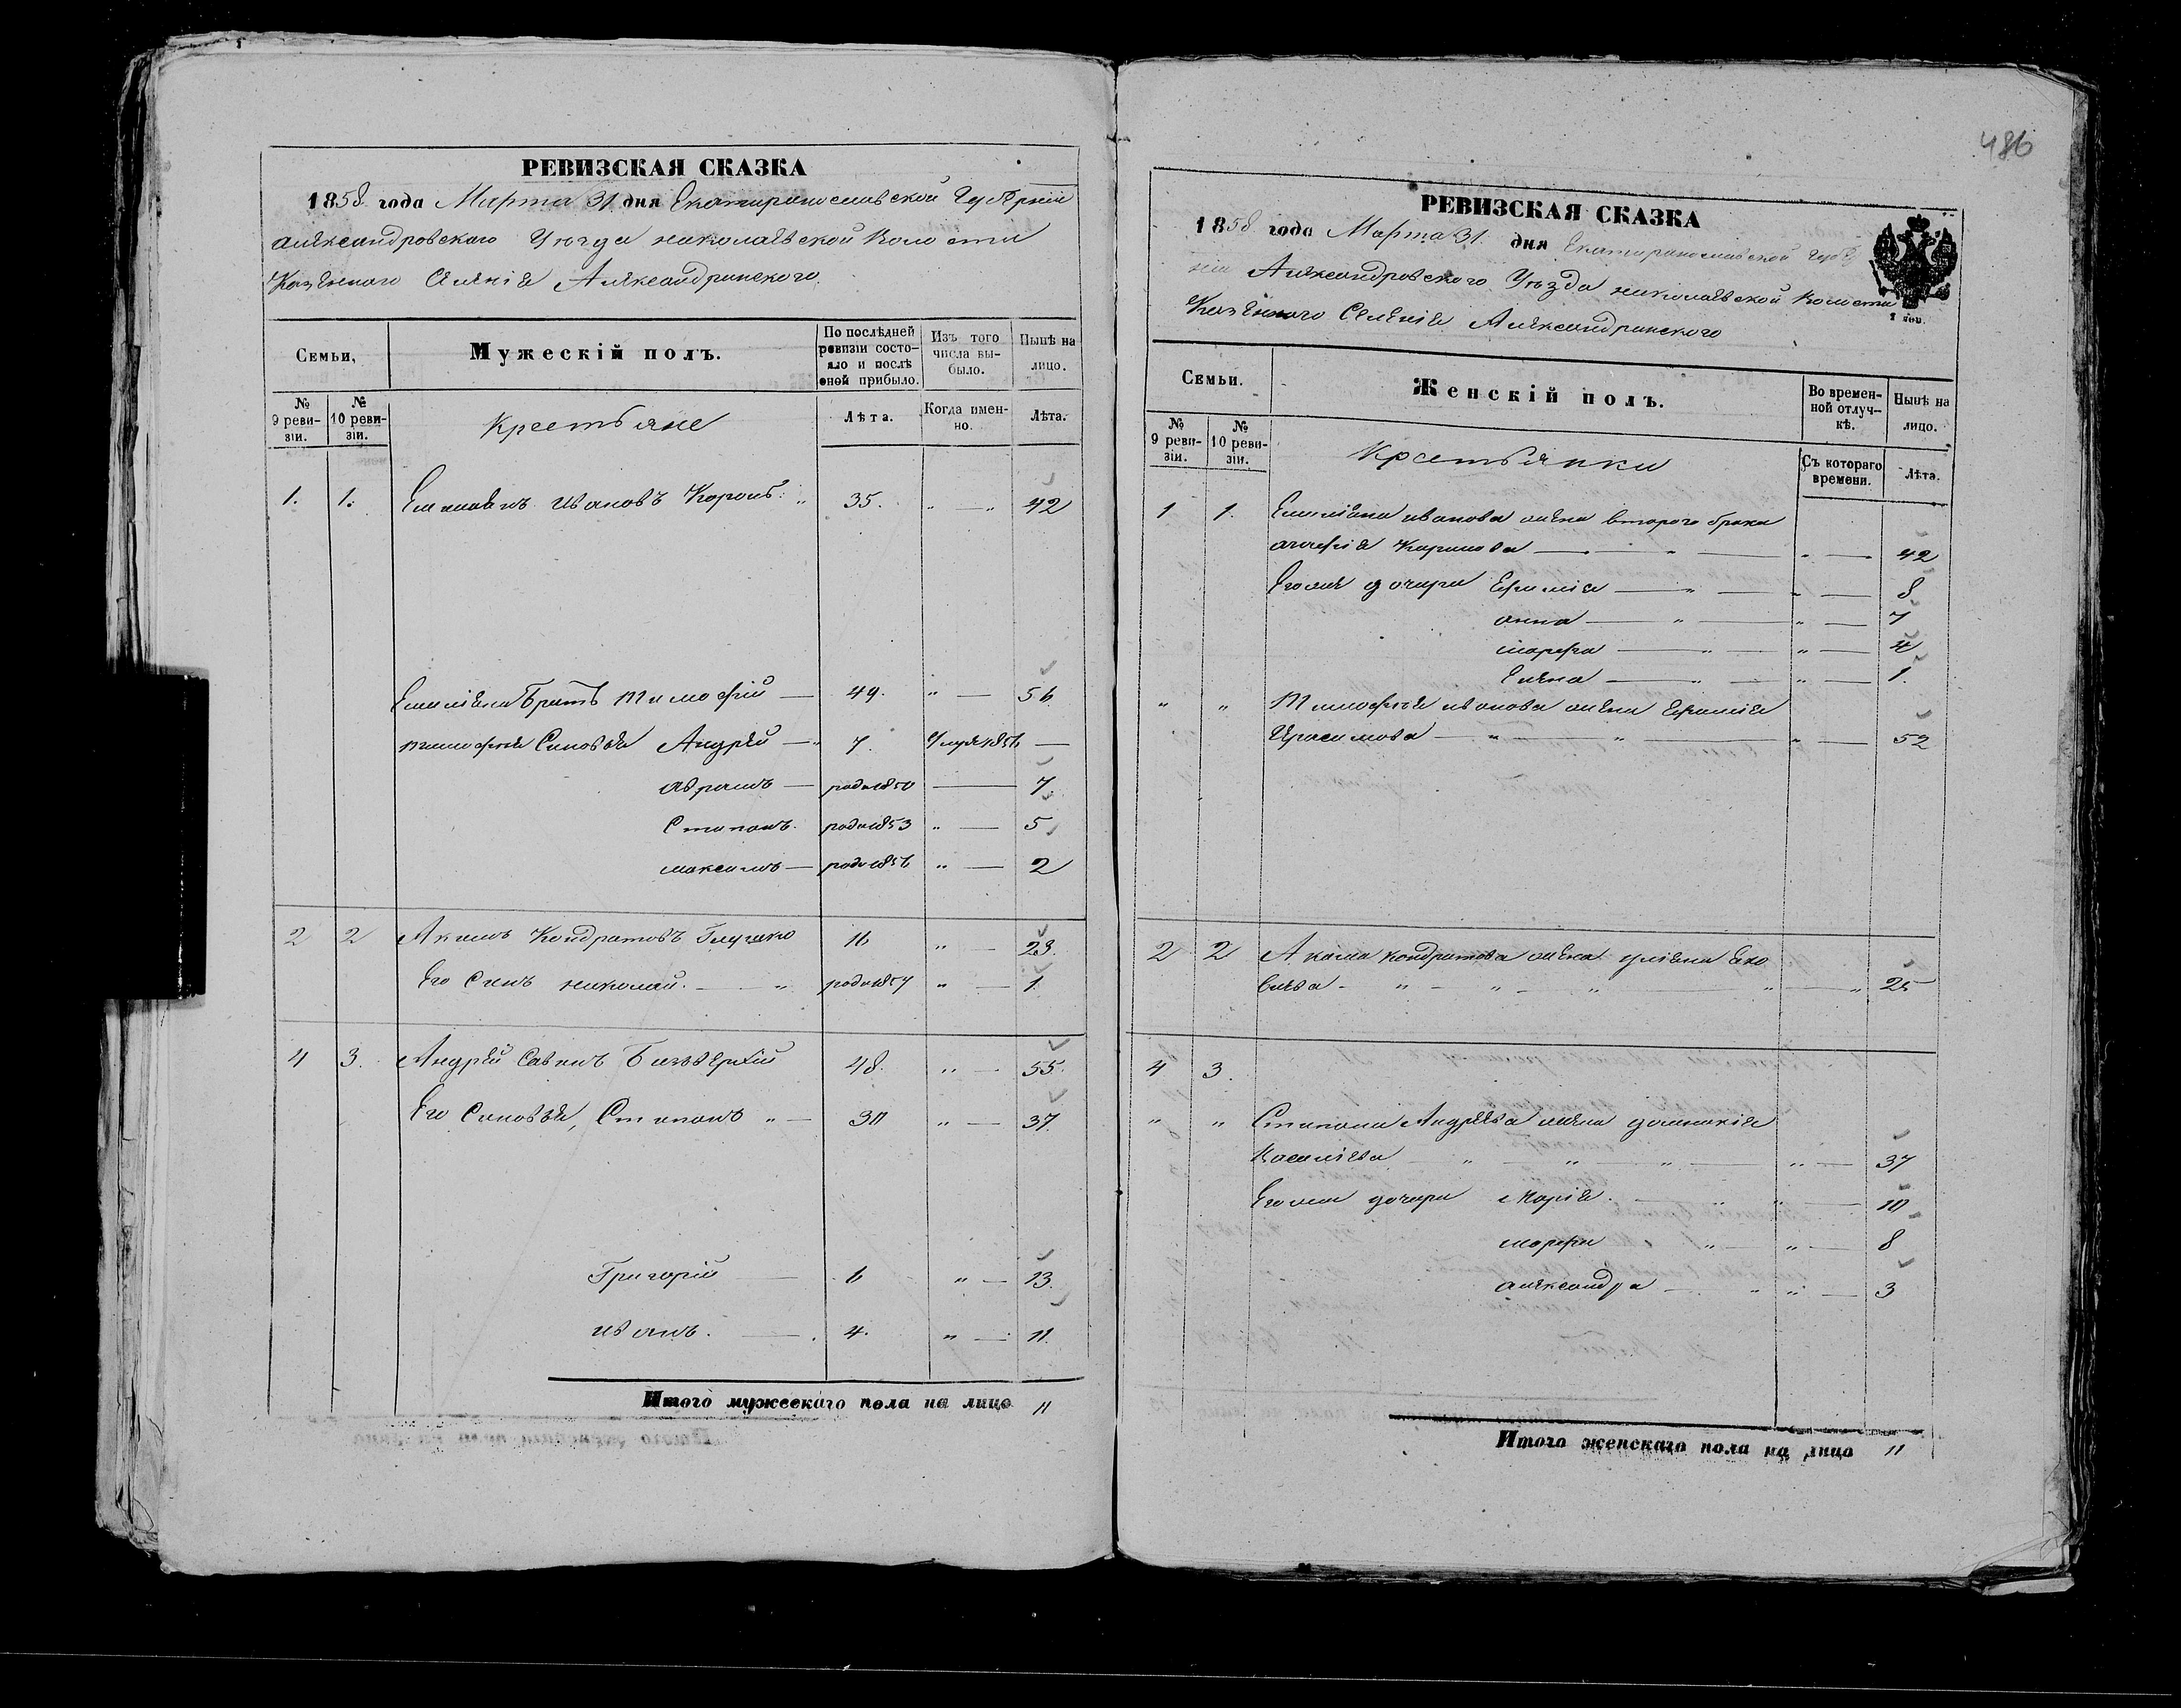 486
РЕВИЗСКАЯ СКАЗКА
1858 года Марта 31 дня Екатеринославской Губернии
александровскаго Уезда николаевской волости
Казенного Селения Александринского.
Семьи,
Мужескій полъ.
По послѣдней ревизіи состояло и послѣ оной прибыло.
Изъ того числа выбыло.
Нынѣ на лицо.
№ 9 ревизіи.
№ 10 ревизіи.
Крестьяне
Лѣта.
Когда именно.
Лѣта.
1. 1. Емельянъ Ивановъ 35. 42
Емельяна братъ Тимофей 49. 56
Тимофея Сыновья Андрей 7. 1856
аврамъ родил 1850 7.
Степанъ родил 1853 5
максимъ родил 1856 2
2 2 Акимъ Кондратовъ Глушко 16 23.
Его Сынъ николай родил 1857 1
4 3. Андрей Савинъ 48. 55.
Его Сыновья, Степанъ 30 37.
Григорій 6 13.
иванъ. 4. 11.
Итого мужескаго пола на лицо 11
РЕВИЗСКАЯ СКАЗКА
1858 года Марта 31. дня Екатеринославской Губер
нии Александровского Уезда николаевской волости
Казенного Селения Александринского
1 коп.
Семьи.
Женскій полъ.
Во временной отлучкѣ.
Нынѣ на лицо.
№ 9 ревизіи.
№ 10 ревизіи.
Крестьянки
Съ котораго времени.
Лѣта.
1 1. Емельяна иванова жена второго брака
42
Его же дочери 8
анна 7
марфа 4
Елена 1.
" " Тимофея иванова жена
52
2 2 Акима кондратова жена
25
4 3.
" " Степана Андреева жена
Васильева 37
Его же дочери Мария. 10
марфа 8
александра 3
Итого женскаго пола на лицо 11